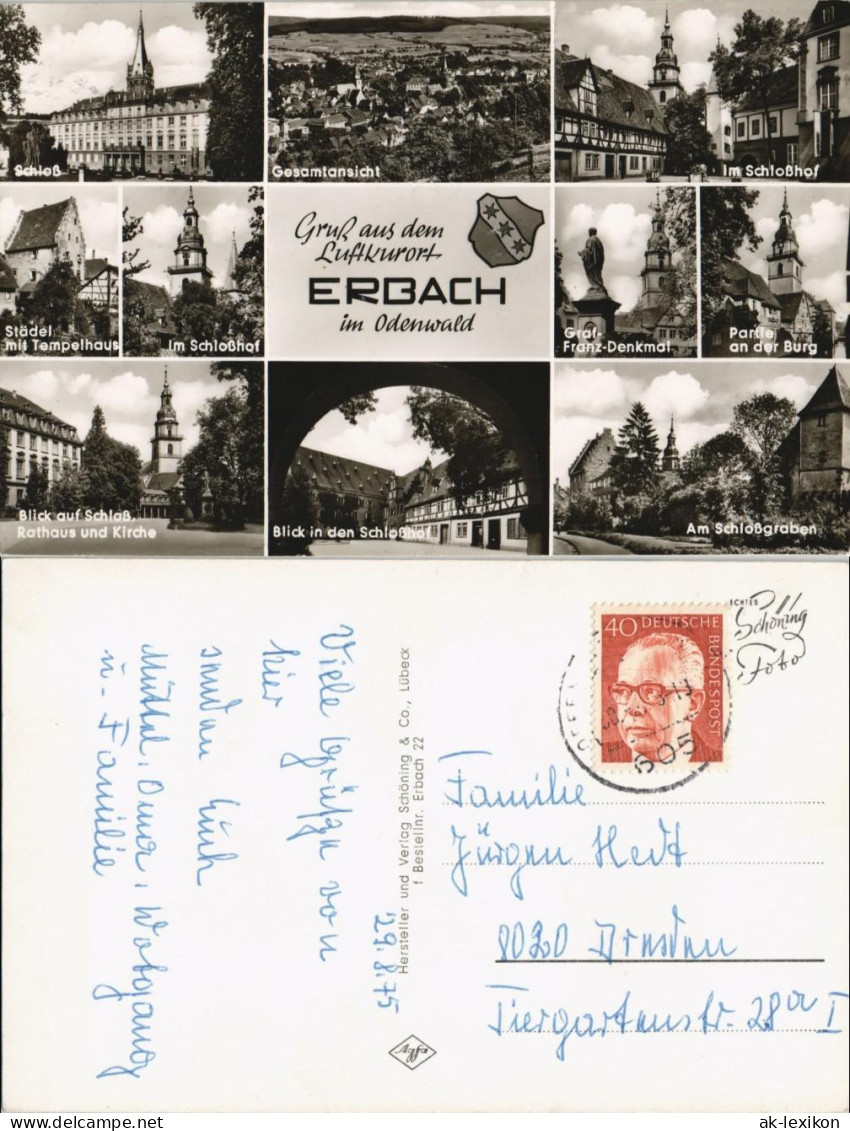 Schloß
Gesamtansicht
Im Schloßhof
Städel
mit Tempelhaus
Im Schloßhof
Gruß aus dem
Luftkurort
ERBACH
im Odenwald
Graf-
Franz-Denkmal
Partie
an der Burg
Blick auf Schloß,
Rathaus und Kirche
Blick in den Schloßhof
Am Schloßgraben
29.8.75
Viele Grüße von
hier
senden Euch
Muttel, Oma, Wolfgang
u. Familie
Hersteller und Verlag Schöning & Co., Lübeck
f Bestellnr. Erbach 22
Agfa
40 DEUTSCHE
BUNDESPOST
605
ECHTES
Schöning
Foto
Familie
Jürgen Hedt
8020 Dresden
Tiergartenstr. 28a I
ak-lexikon.com